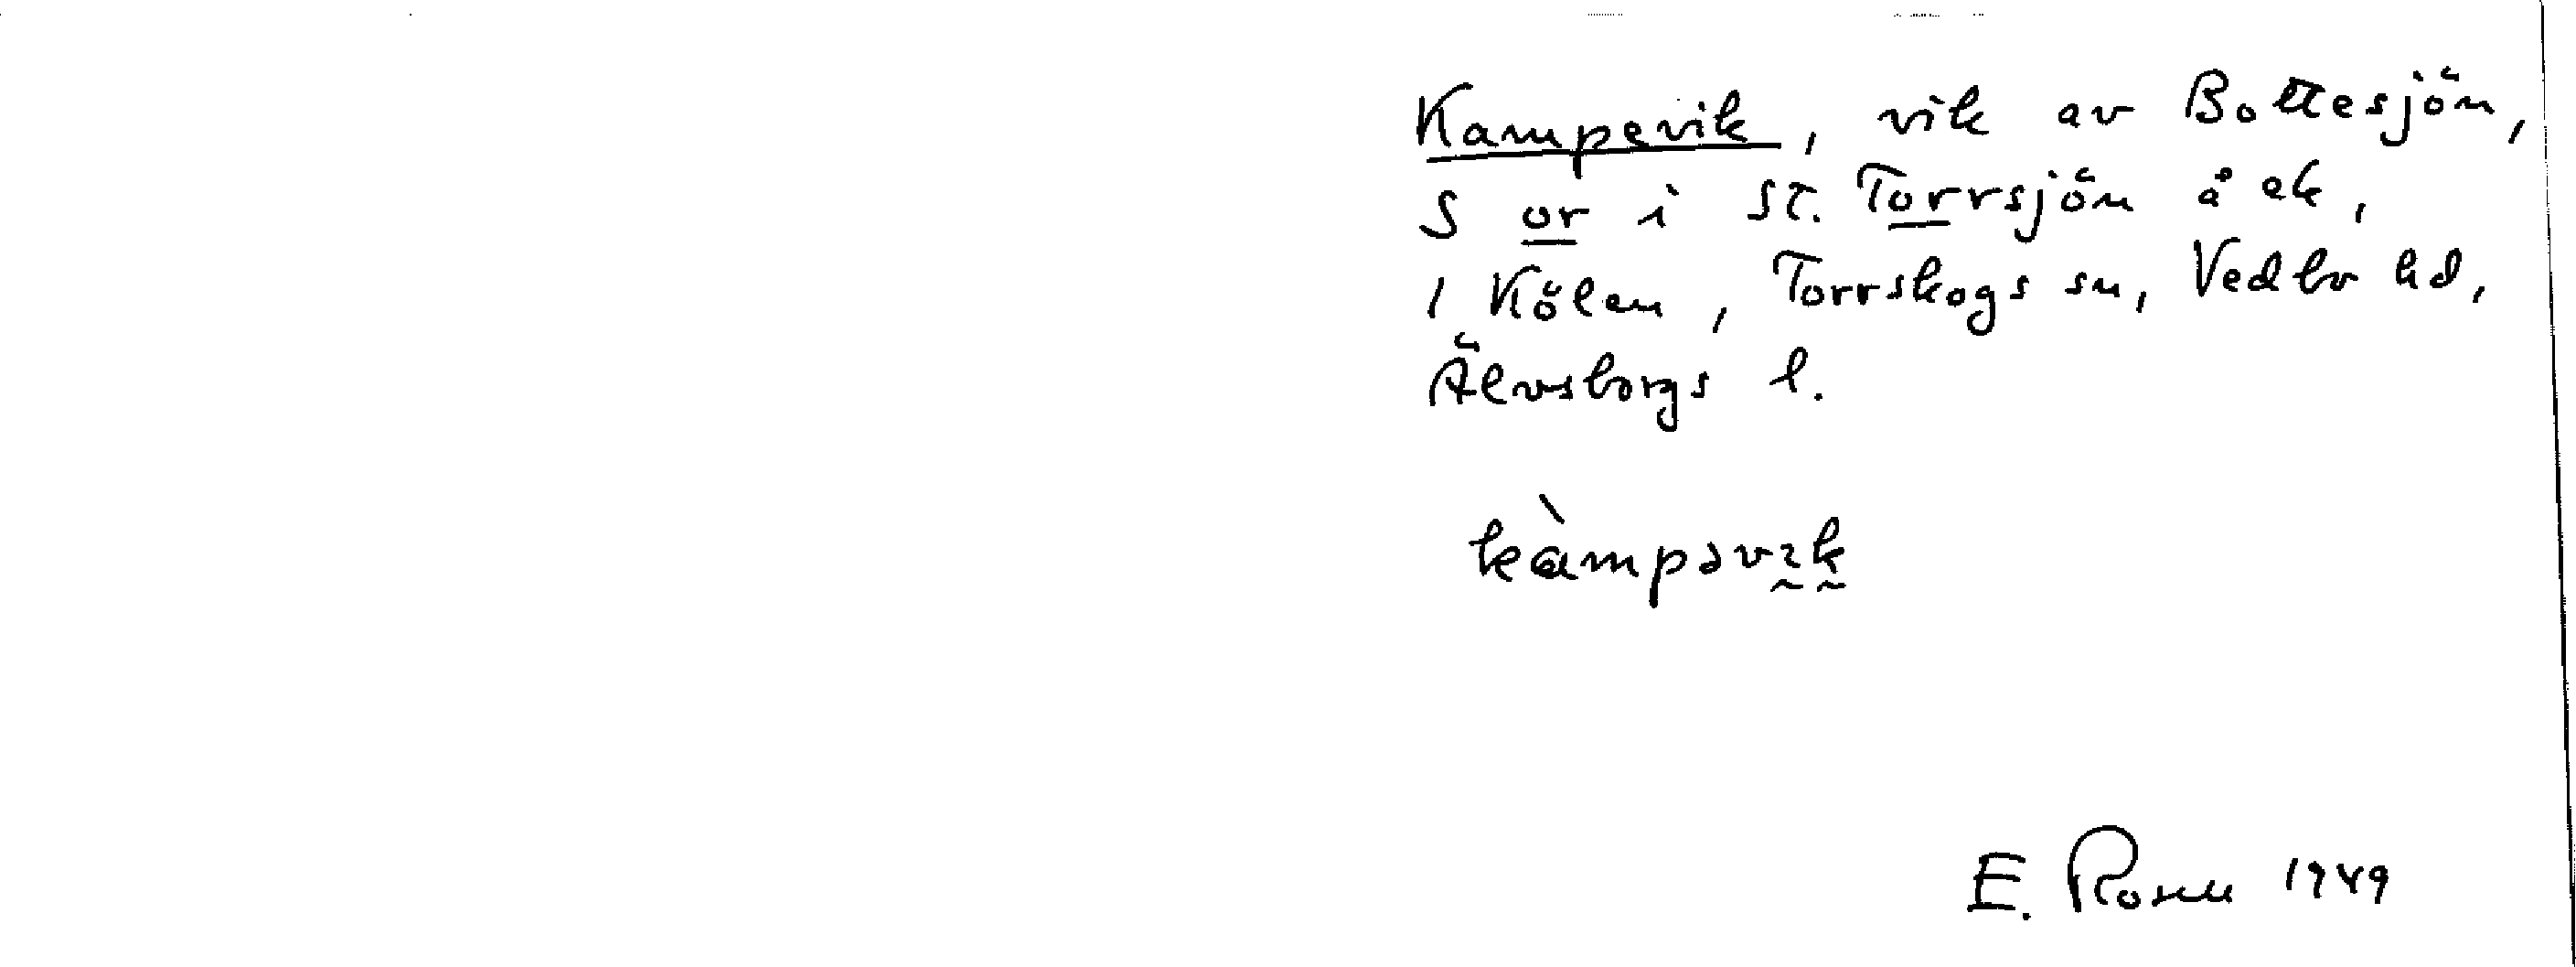 Kampevik, vik av Bottesjön,
S or i St. Torrsjön å ek,
1 Kölen, Torrskogs sn, Vedbo hd,
Älvsborgs l.
kàmpəvik
E. Rosen 1949